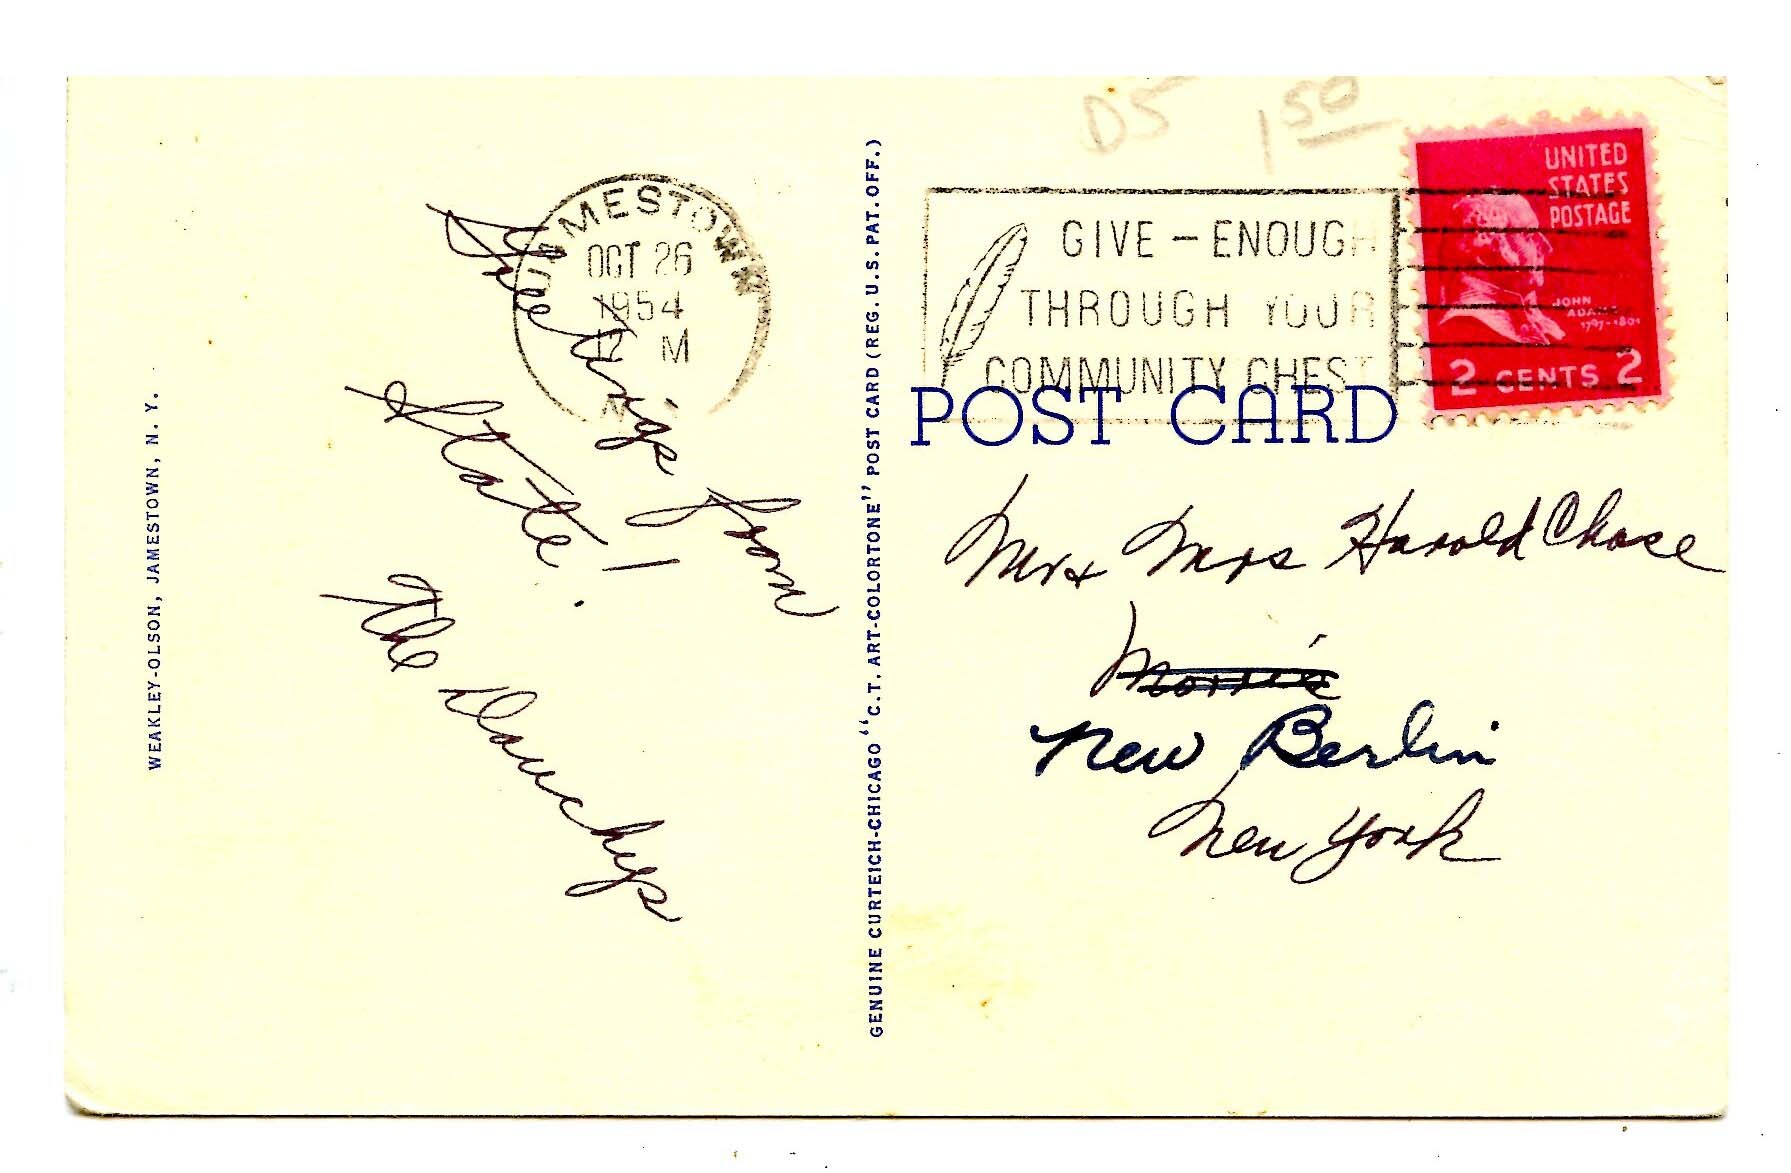 D5 1 50
UNITED
STATES
POSTAGE
JOHN
ADAMS
1797-1801
2 CENTS 2
JAMESTOWN
OCT 26
1954
12 M
N
GIVE - ENOUGH
THROUGH YOUR
COMMUNITY CHEST
POST CARD
from
State!
The
Mr & Mrs Harold Chase
Morris
New Berlin
New York
WEAKLEY-OLSON, JAMESTOWN, N. Y.
GENUINE CURTEICH-CHICAGO "C.T. ART-COLORTONE" POST CARD (REG. U.S. PAT. OFF.)